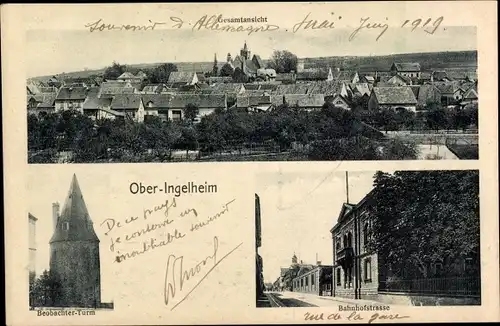 Gesamtansicht
Souvenir d'Allemagne. Mai - Juin 1919.
Ober-Ingelheim
De ce pays
je conserve un
inoubliable souvenir
Beobachter-Turm
Bahnhofstrasse
rue de la gare